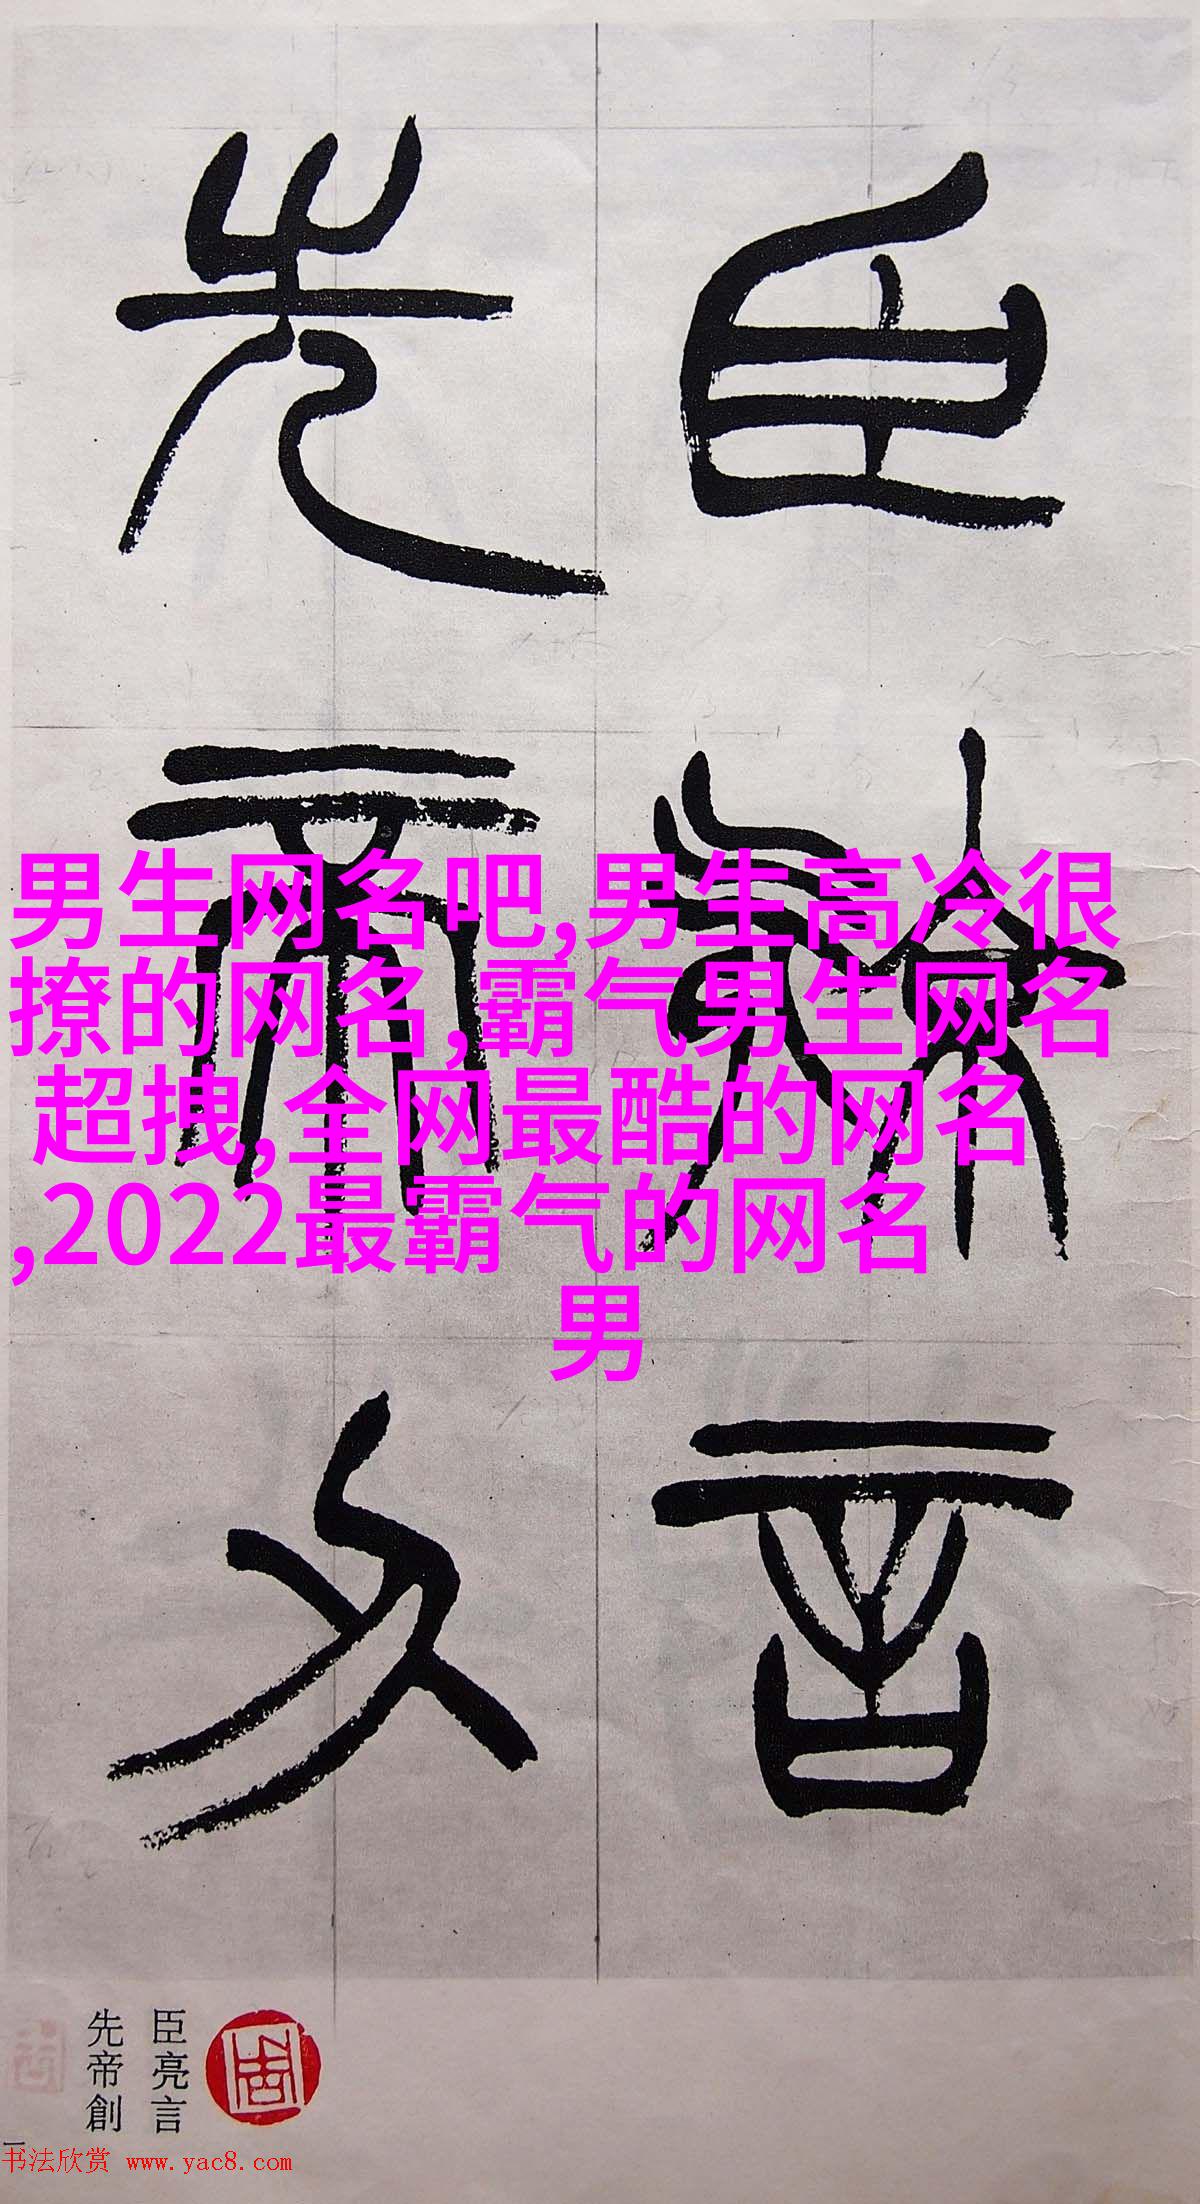 臣亮言
先帝創
男生网名吧,男生高冷很
撩的网名,霸气男生网名
超拽,全网最酷的网名
,2022最霸气的网名
男
臣亮言
先帝創
一
书法欣赏 www.yac8.com